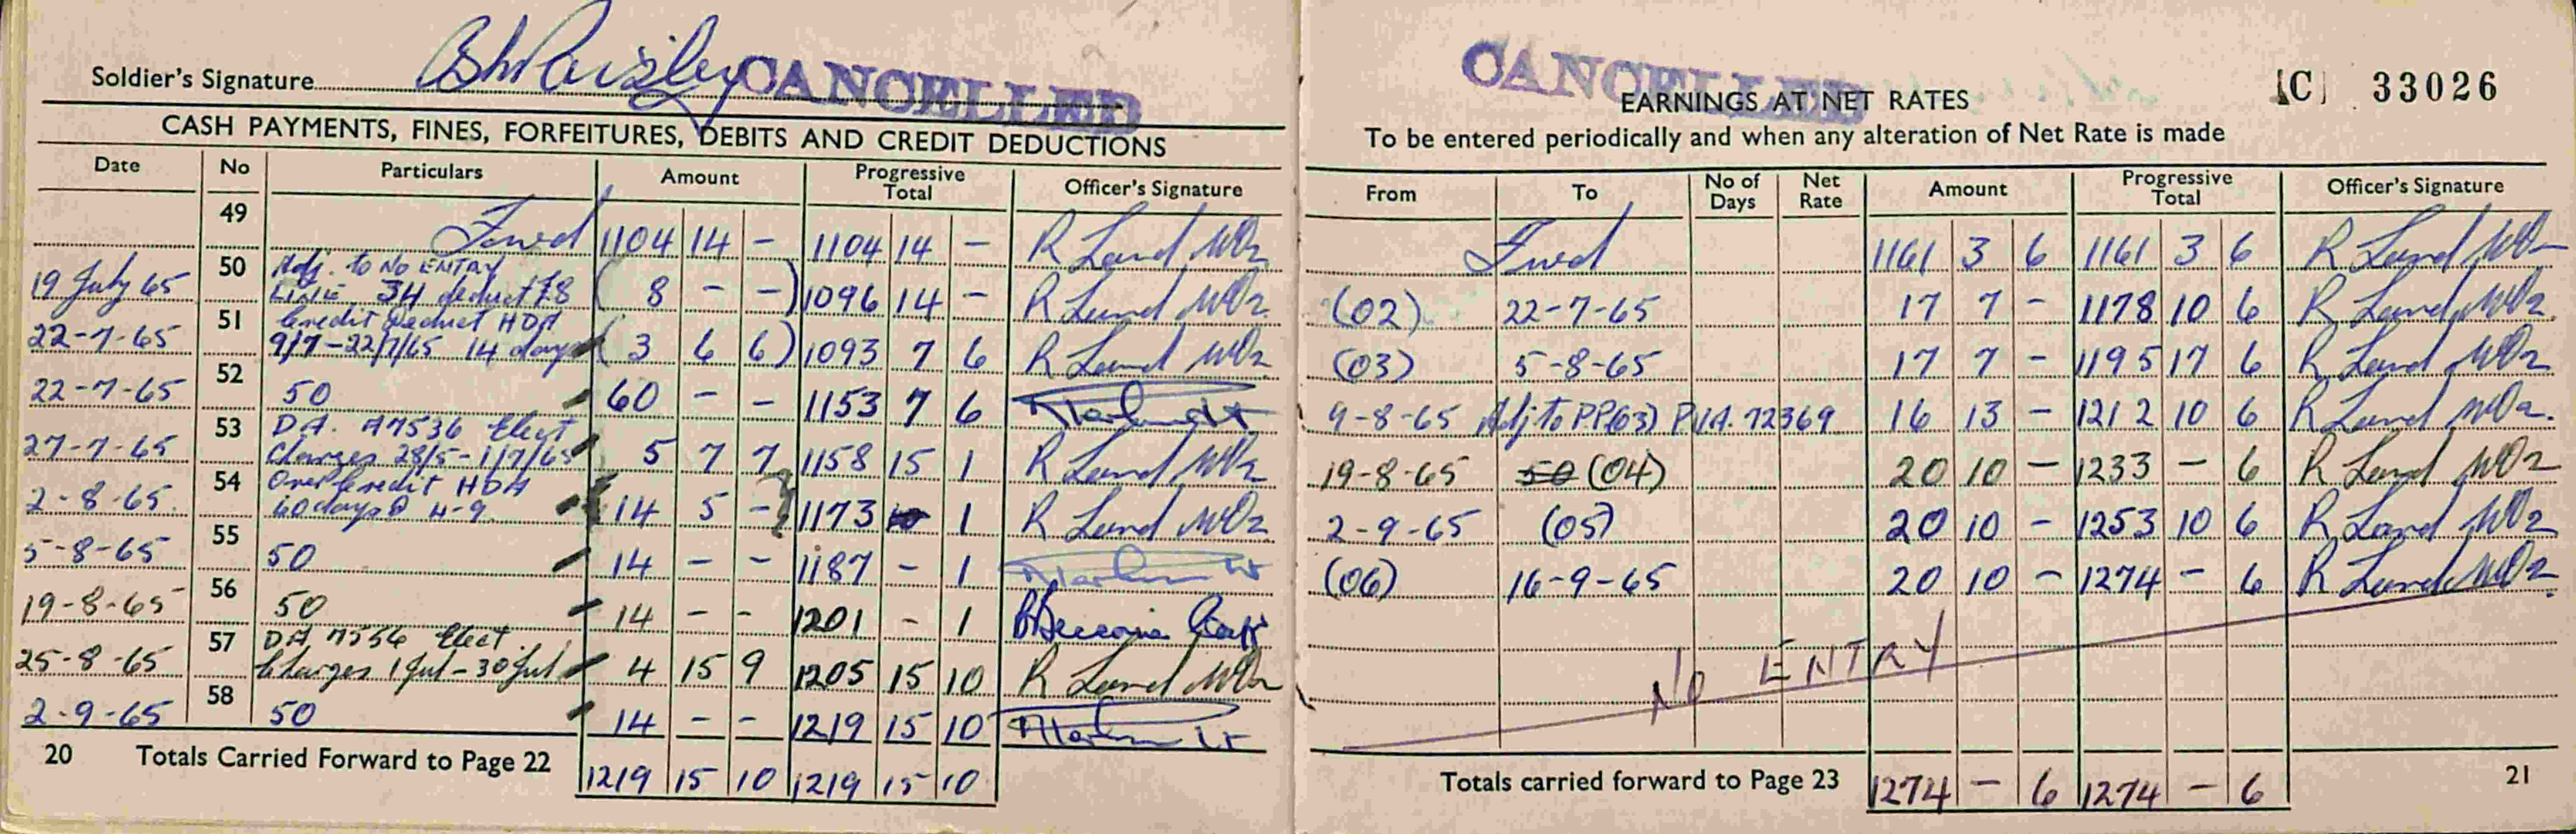 Soldier's Signature
CANCELLED
CASH PAYMENTS, FINES, FORFEITURES, DEBITS AND CREDIT DEDUCTIONS
Date No Particulars Amount Progressive Total Officer's Signature
49 Fwd 1104 14 - 1104 14 - R Lund WO2
19 July 65 50 Adj. to No ENTRY
LINE 34 deduct £8 ( 8 - - ) 1096 14 - R Lund WO2
22-7-65 51 Credit Deduct HDA
9/7-22/7/65 14 days ( 3 6 6 ) 1093 7 6 R Lund WO2
22-7-65 52 50 60 - - 1153 7 6
27-7-65 53 DA. A7536 Elect
Charges 28/5-1/7/65 5 7 7 1158 15 1 R Lund WO2
2-8-65 54 Over Credit HDA
60 days @ 4-9 14 5 - 1173 1 R Lund WO2
5-8-65 55 50 14 - - 1187 - 1
19-8-65 56 50 14 - - 1201 - 1
25-8-65 57 DA A7556 Elect
Charges 1 Jul - 30 Jul 4 15 9 1205 15 10 R Lund WO2
2-9-65 58 50 14 - - 1219 15 10
20 Totals Carried Forward to Page 22 1219 15 10 1219 15 10
CANCELLED
(C) 33026
EARNINGS AT NET RATES
To be entered periodically and when any alteration of Net Rate is made
From To No of Days Net Rate Amount Progressive Total Officer's Signature
Fwd 1161 3 6 1161 3 6 R Lund WO2
(02) 22-7-65 17 7 - 1178 10 6 R Lund WO2
(03) 5-8-65 17 7 - 1195 17 6 R Lund WO2
9-8-65 Adj to PP(03) PVA. 72369 16 13 - 1212 10 6 R Lund WO2
19-8-65 50 (04) 20 10 - 1233 - 6 R Lund WO2
2-9-65 (05) 20 10 - 1253 10 6 R Lund WO2
(06) 16-9-65 20 10 - 1274 - 6 R Lund WO2
No ENTRY
Totals carried forward to Page 23 1274 - 6 1274 - 6
21